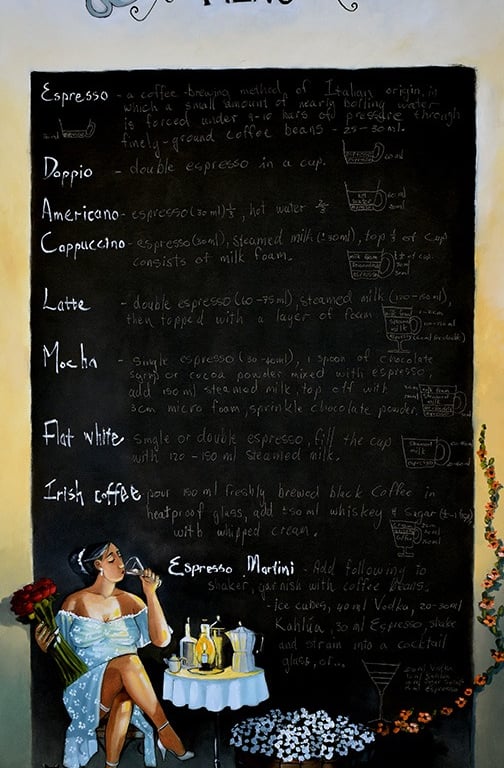 MENU
Espresso - a coffee-brewing method, of Italian origin, in
which a small amount of nearly boiling water
is forced under 9-10 bars of pressure through
finely-ground coffee beans - 25-30ml.
Doppio - double espresso in a cup.
Americano - espresso (30ml) ⅓, hot water ⅔
Cappuccino - espresso (30ml), steamed milk, top ⅓ of cup
consists of milk foam.
Latte - double espresso, steamed milk
then topped with a layer of foam
Mocha - single espresso, 1 spoon of chocolate
syrup or cocoa powder mixed with espresso,
add 150 ml steamed milk, top off with
3cm micro foam, sprinkle chocolate powder.
Flat white single or double espresso, fill the cup
with 120-150 ml steamed milk.
Irish coffee pour 150 ml freshly brewed black Coffee in
heatproof glass, add whiskey & Sugar
with whipped cream.
Espresso Martini - Add following to
shaker, garnish with coffee beans.
- ice cubes, 40ml Vodka, 20-30ml
Kahlúa, 30 ml Espresso, shake
and strain into a cocktail
glass, or...